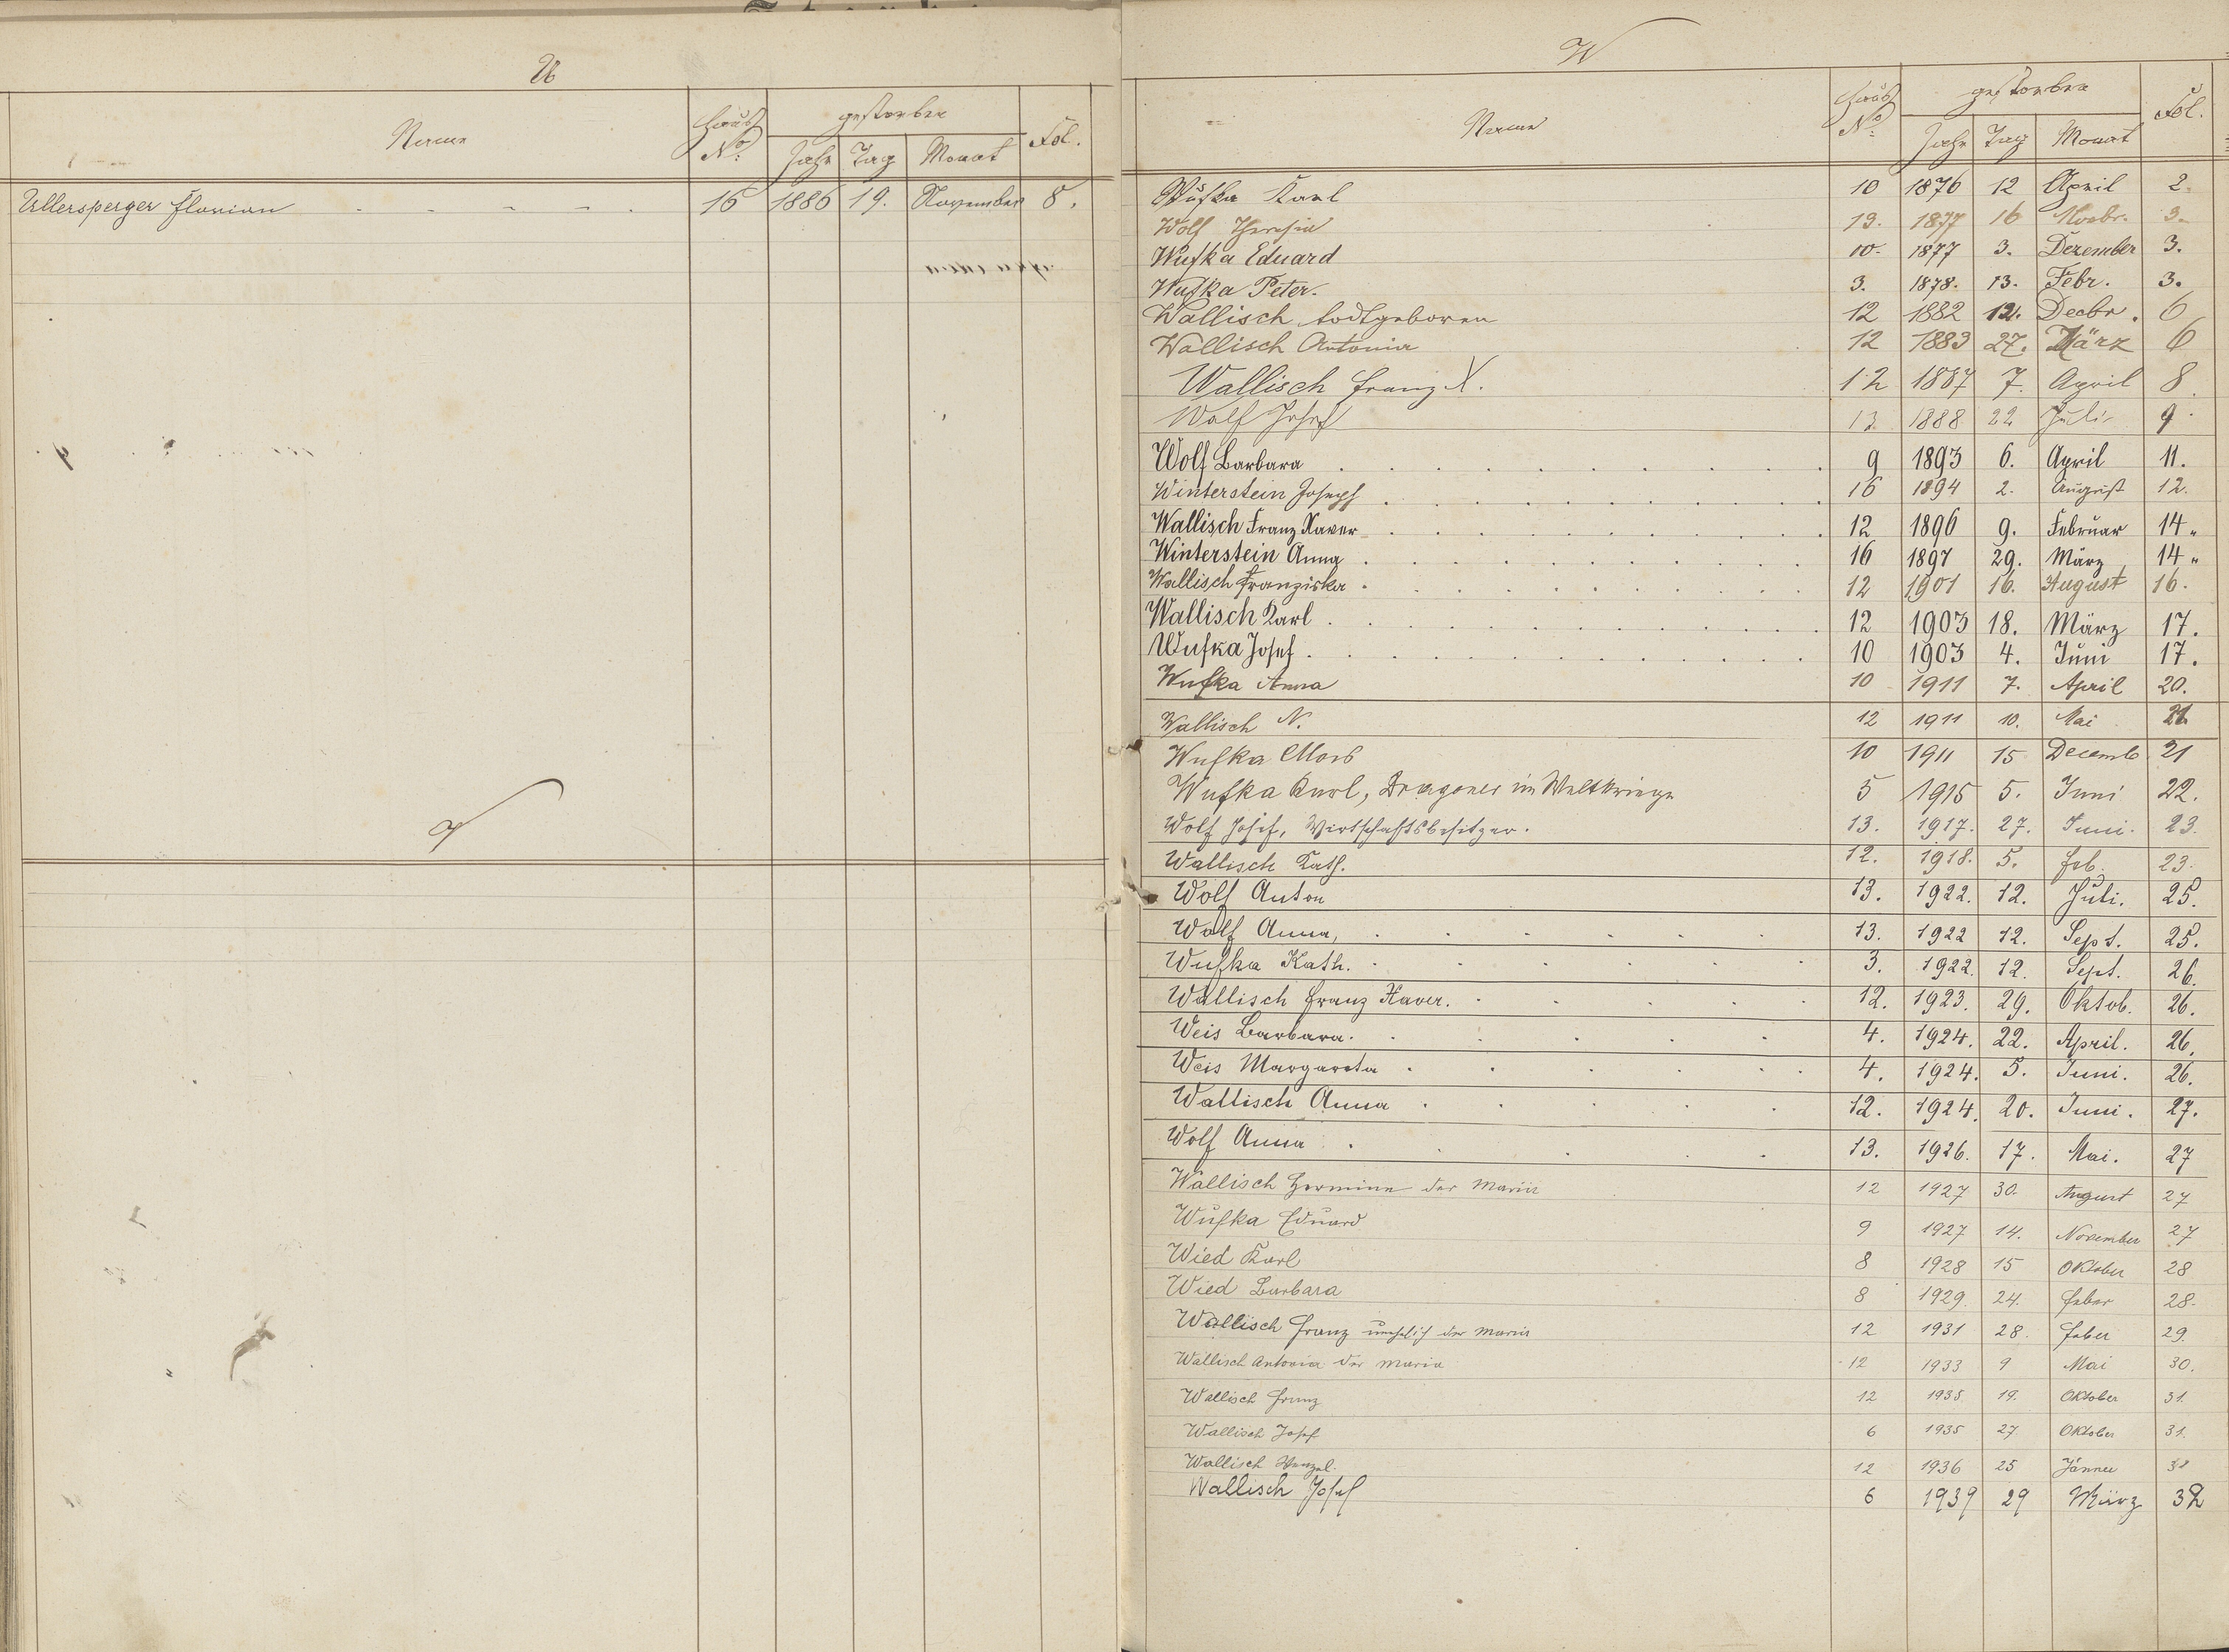 U
Name Haus No: gestorben Fol.
Jahr Tag Monat
Ullersperger Florian 16 1886 19. November 8.
V
W
Name Haus No: gestorben Fol.
Jahr Tag Monat
Wufka Karl 10 1876 12 April 2.
Wolf Theresia 13. 1877 16 Novbr. 3.
Wufka Eduard 10. 1877 3. Dezember 3.
Wufka Peter. 3. 1878. 13. Febr. 3.
Wallisch todtgeboren 12 1882 12. Decbr. 6
Wallisch Antonia 12 1883 27. März 6
Wallisch Franz X. 12 1887 7. April 8
Wolf Josef 13 1888 22 Juli 9.
Wolf Barbara 9 1893 6. April 11.
Winterstein Joseph 16 1894 2. August 12.
Wallisch Franz Xaver 12 1896 9. Februar 14"
Winterstein Anna 16 1897 29. März 14"
Wallisch Franziska 12 1901 16. August 16.
Wallisch Karl 12 1903 18. März 17.
Wufka Josef 10 1903 4. Juni 17.
Wufka Anna 10 1911 7. April 20.
Wallisch N. 12 1911 10. Mai 21
Wufka 10 1911 15 Decemb 21
Wufka Karl, Dragoner im Weltkriege 5 1915 5. Juni 22.
Wolf Josef, Wirtschaftsbesitzer. 13. 1917. 27. Juni. 23.
Wallisch Kath. 12. 1918. 5. Feb. 23.
Wolf Anton 13. 1922. 12. Juli. 25.
Wolf Anna, 13. 1922 12. Sept. 25.
Wufka Kath. 3. 1922. 12. Sept. 26.
Wallisch Franz Xaver. 12. 1923. 29. Oktob. 26.
Weis Barbara. 4. 1924. 22. April. 26.
Weis Margareta 4. 1924. 5. Juni. 26.
Wallisch Anna 12. 1924. 20. Juni. 27.
Wolf Anna 13. 1926. 17. Mai. 27
Wallisch Hermine der Maria 12 1927 30. August 27
Wufka Eduard 9 1927 14. November 27
Wied Karl 8 1928 15 Oktober 28
Wied Barbara 8 1929. 24. Feber 28.
Wallisch Franz unehelich der Maria 12 1931 28. Feber 29.
Wallisch Antonia der Maria 12 1933 9 Mai 30.
Wallisch Franz 12 1935. 19. Oktober 31.
Wallisch Josef 6 1935 27 Oktober 31.
Wallisch Wenzel. 12 1936 25 Jänner
Wallisch Josef 6 1939 29 März 32